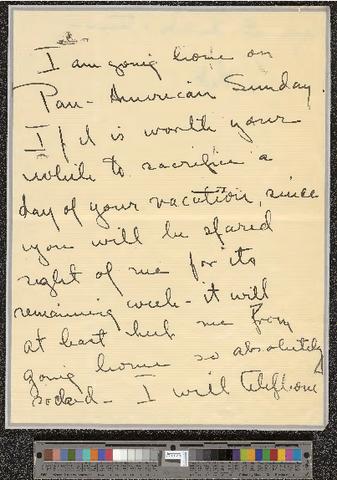 I am going home on
Pan-American Sunday.
If it is worth your
while to sacrifice a
day of your vacation, since
you will be spared
sight of me for its
remaining week - it will
at least me from
going home so absolutely
- I will telephone